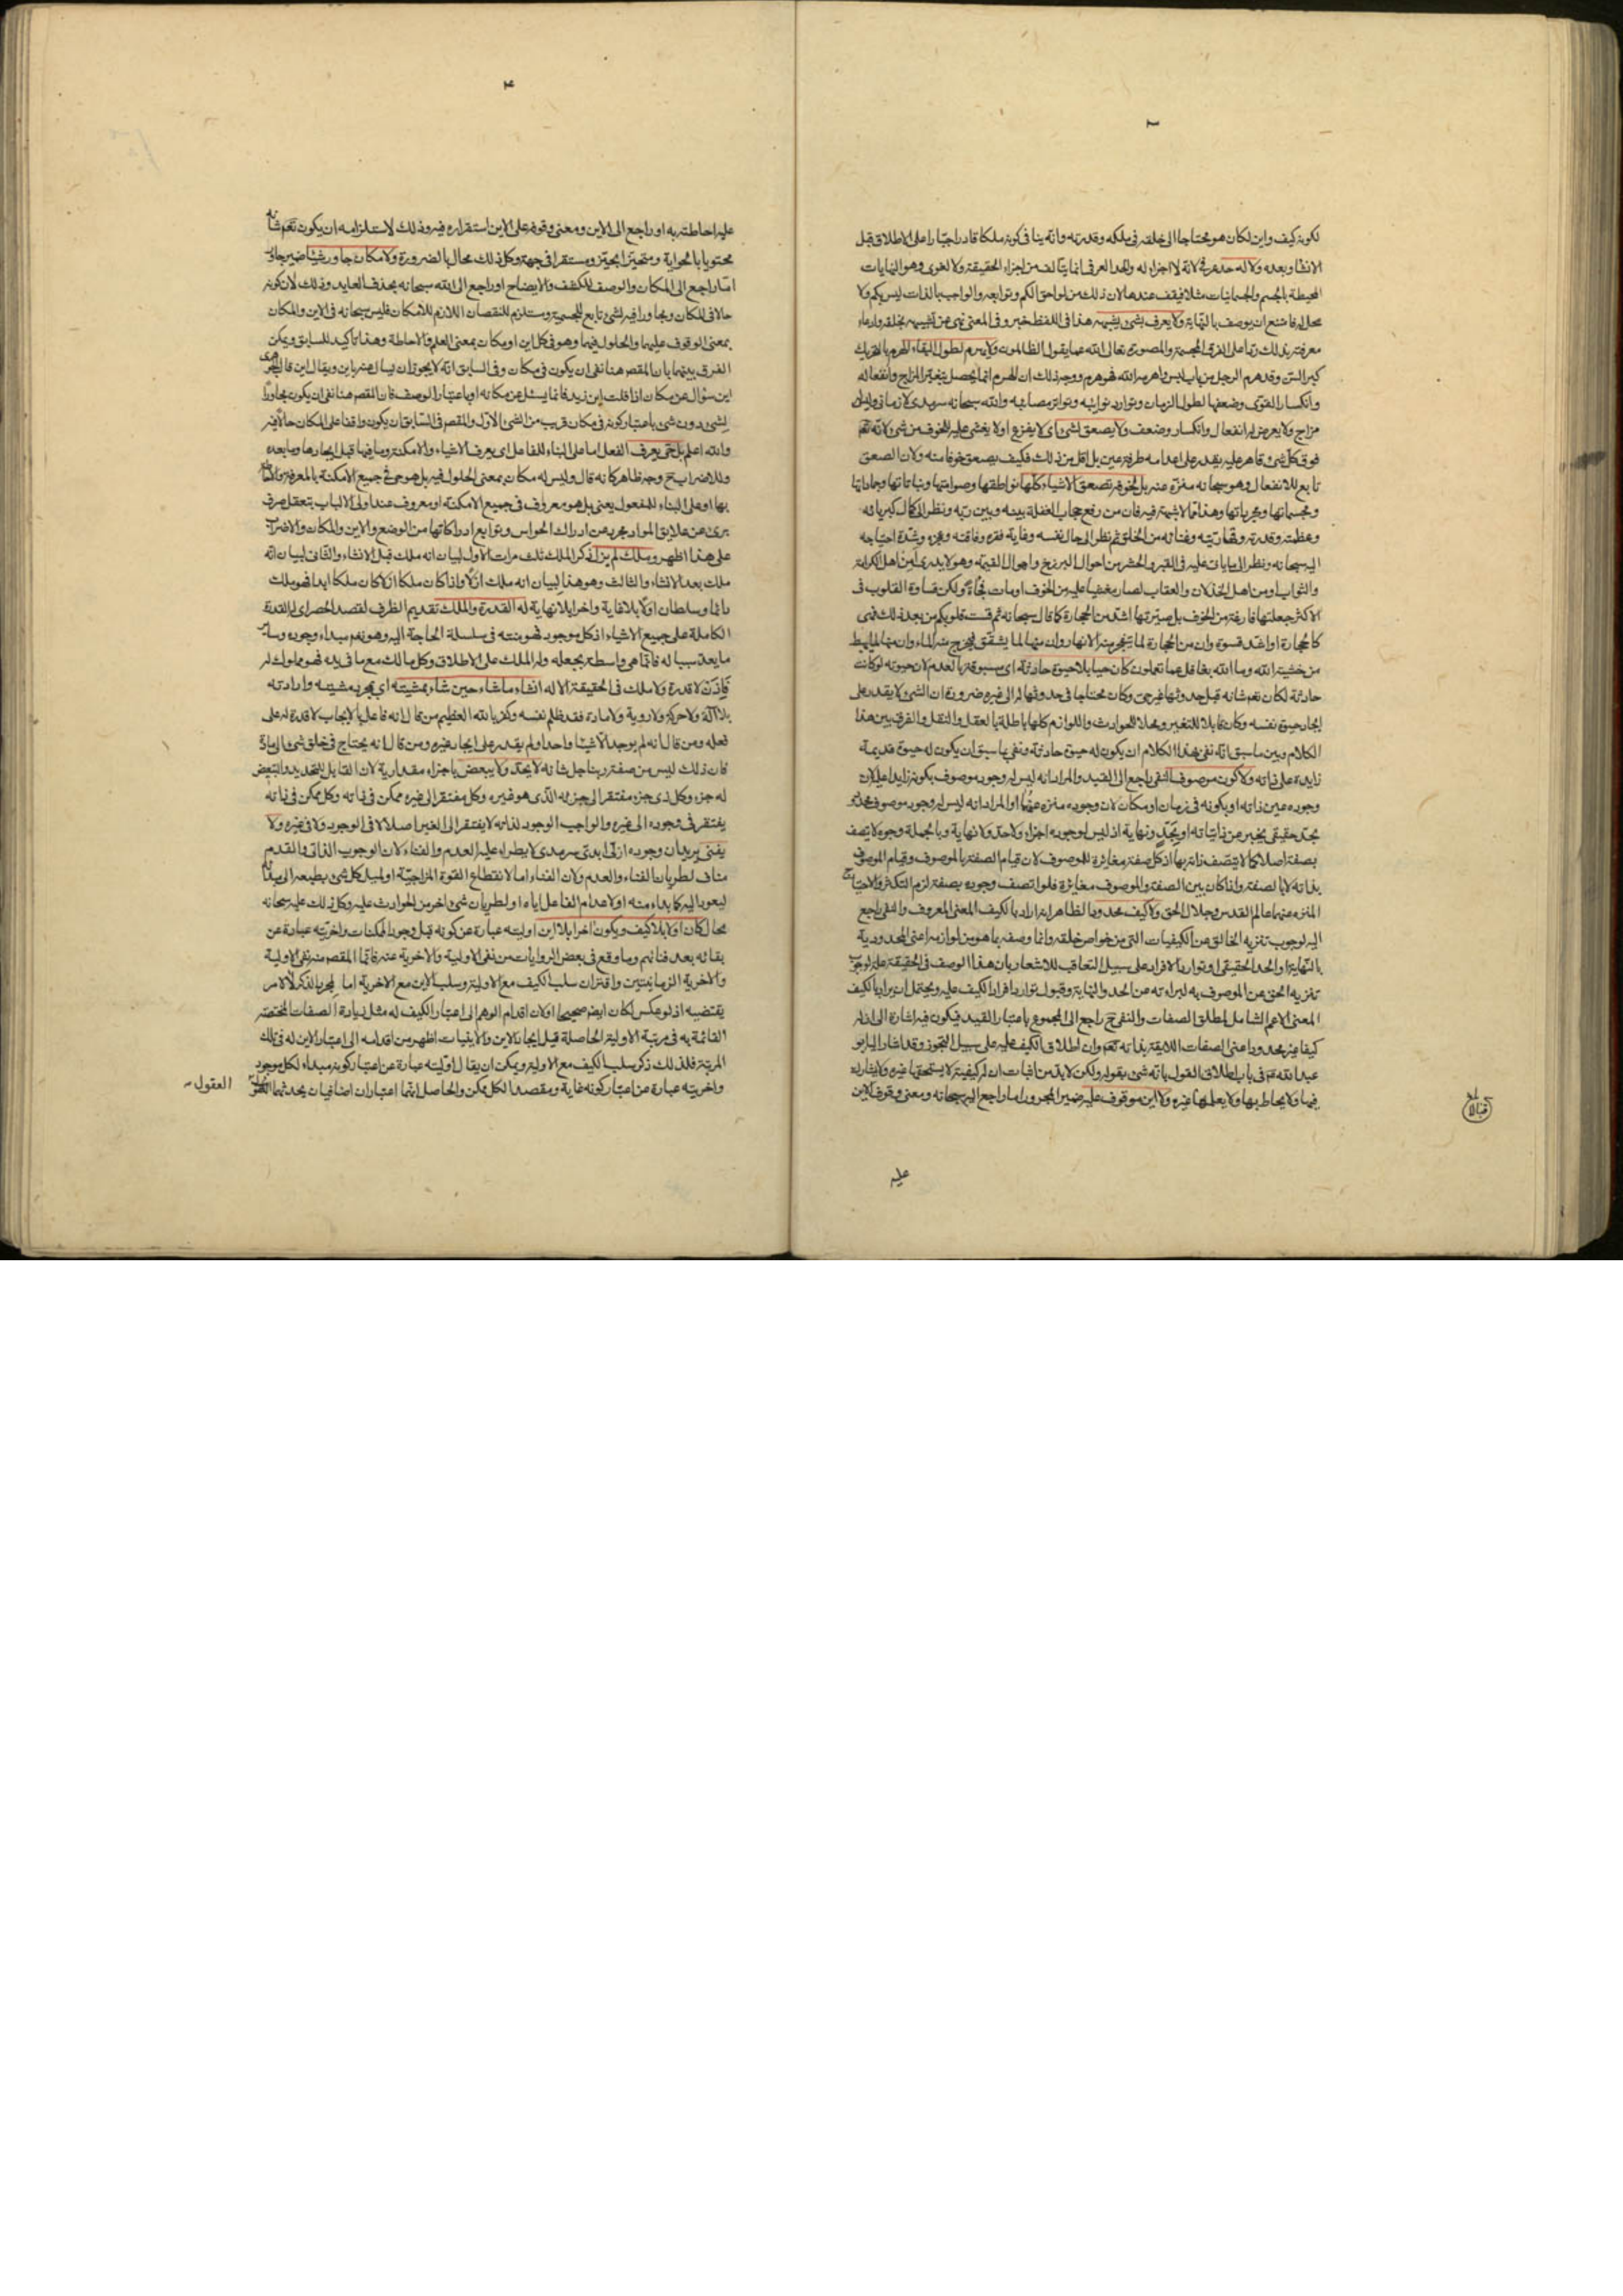 ٢
لكونه كيف واين لكان هو محتاجا الى خلقه فى ملكه وقدرته وانه ينافى كونه ملكا قادرا جبارا على الاطلاق قبل
الانشاء وبعده ولا له حد عرفى لانه لا اجزاء له والحد العرفى انما يتالف من اجزاء الحقيقة ولا لغوى وهو النهايات
المحيطة بالجسم والجسمانيات مثلا فيقف عندها لان ذلك من لواحق الكم وتوابعه والواجب بالذات ليس بكم ولا
محل له فامتنع ان يوصف بالنهاية ولا يعرف بشىء يشبهه هذا فى اللفظ خبر وفى المعنى نهى عن تشبيهه بخلقه وادعاء
معرفته بذلك ردا على الفرق المجسمة والمصورة تعالى الله عما يقول الظالمون ولا يهرم لطول البقاء الهرم بالتحريك
كبر السن وقد هرم الرجل من باب لبس واهرمه الله فهو هرم ووجه ذلك ان الهرم انما يحصل بتغير المزاج وانفعاله
وانكسار القوى وضعفها لطول الزمان وتوارد نوائبه وتواتر مصائبه والله سبحانه سرمدى لا زمانى وليس له
مزاج ولا يعرض له انفعال وانكسار وضعف ولا يصعق لشىء اى لا يفزع او لا يغشى عليه للخوف من شىء لانه تعم
فوق كل شىء وقاهر عليه يقدر على اعدامه طرفة عين بل اقل من ذلك فكيف يصعق خوفا منه ولان الصعق
تابع للانفعال وهو سبحانه منزه عنه بل لخوفه تصعق الاشياء كلها نواطقها وصوامتها ونباتاتها وجماداتها
ومجسماتها ومجرداتها وهذا مما لا شبهة فيه فان من رفع حجاب الغفلة بينه وبين ربه ونظر الى كمال كبريائه
وعظمته وقدرته وقهاريته وغنائه من الخلق ثم نظر الى حال نفسه وغاية فقره وفاقته وعجزه وشدة احتياجه
اليه سبحانه ونظر الى ما يات عليه فى القبر والحشر من احوال البرزخ واهوال القيمة وهو لا يدرى امن اهل الكرامة
والثواب او من اهل الخذلان والعقاب لصار مغشيا عليه من الخوف او مات فجاة ولكن قساوة القلوب فى
الاكثر جعلتها فارغة من الخوف بل صيرتها اشد من الحجارة كما قال سبحانه ثم قست قلوبكم من بعد ذلك فهى
كالحجارة او اشد قسوة وان من الحجارة لما يتفجر منه الانهار وان منها لما يشقق فيخرج منه الماء وان منها لما يهبط
من خشية الله وما الله بغافل عما تعملون كان حيا بلا حيوة حادثة اى مسبوقة بالعدم لان حيوته لو كانت
حادثة لكان تعم شانه قبل حدوثها غير حى وكان محتاجا فى حدوثها له الى غيره ضرورة ان الشىء لا يقدر على
ايجاد حيوة نفسه وكان قابلا للتغير ومحلا للحوادث واللوازم كلها باطلة بالعقل والنقل والفرق بين هذا
الكلام وبين ما سبق انه نفى بهذا الكلام ان يكون له حيوة حادثة ونفى بما سبق ان يكون له حيوة قديمة
زايدة على ذاته ولا كون موصوف النفى راجع الى القيد والمراد انه ليس له وجود موصوف بكونه زايدا عليه لان
وجوده عين ذاته او بكونه فى زمان او مكان لان وجوده منزه عنهما او المراد انه ليس له وجود موصوف محدود
بحد حقيقى يخبر عن ذاتياته او بحد ونهاية اذ ليس لوجوده اجزاء ولا حد ولا نهاية وبالجملة وجوده لا يتصف
بصفة اصلا كما لا يتصف ذاته بها اذ كل صفة مغايرة للموصوف لان قيام الصفة بالموصوف وقيام الموصوف
بذاته لا بالصفة واذا كان بين الصفة والموصوف مغايرة فلو اتصف وجوده بصفة لزم التكثر والاحتياج
المنزه عنهما عالم القدس وجلال الحق ولا كيف محدود الظاهر انه اراد بالكيف المعنى المعروف والنفى راجع
اليه لوجوب تنزيه الخالق عن الكيفيات التى من خواص خلقه وانما وصفه بما هو من لوازمه اعنى المحدودية
بالنهاية او الحد الحقيقى او توارد الافراد على سبيل التعاقب للاشعار بان هذا الوصف فى الحقيقة علة لوجوب
تنزيه الحق عن الموصوف به لبراءته عن الحد والنهاية وقبول توارد افراد الكيف عليه ويحتمل ان يراد بالكيف
المعنى الاعم الشامل لمطلق الصفات والنفى ح راجع الى المجموع باعتبار القيد فيكون فيه اشارة الى ان له
كيفا غير محدود اعنى الصفات اللايقة بذاته تعم وان اطلاق الكيف عليه على سبيل التجوز وقد اشار اليه ابو
عبد الله ع فى باب اطلاق القول بانه شىء بقوله ولكن لا بد من اثبات ان له كيفية لا يستحقها غيره ولا يشارك
فيها ولا يحاط بها ولا يعلمها غيره ولا اين موقوف عليه ضمير المجرور اما راجع اليه سبحانه ومعنى وقوف الاين
عليه
٣
عليه احاطته به او راجع الى الاين ومعنى وقوفه على الاين استقراره فيه وذلك لاستلزامه ان يكون تعم شانه
محتويا بالحواية ومتحيزا بحيز ومستقرا فى جهة وكل ذلك محال بالضرورة ولا مكان جاور شيئا ضمير جاور
اما راجع الى المكان والوصف للكشف والايضاح او راجع الى الله سبحانه بحذف العايد وذلك لان كونه
حالا فى المكان ومجاورا فيه لشىء تابع للجسمية ومستلزم للنقصان اللازم للامكان فليس سبحانه فى الاين والمكان
بمعنى الوقوف عليهما والحلول فيهما وهو فى كل اين او مكان بمعنى العلم والاحاطة وهذا تاكيد للسابق ويمكن
الفرق بينهما بان المقصم هنا نفى ان يكون فى مكان وفى السابق انه لا يجوز ان يسال عنه باين ويقال اين قال الجوهرى
اين سؤال عن مكان اذا قلت اين زيد فانما يسئل عن مكانه او باعتبار الوصف فان المقصم هنا نفى ان يكون مجاورا
لشىء دون شىء باعتبار كونه فى مكان قريب من الشىء الاول والمقصم فى السابق ان يكون واقفا على المكان حالا فيه
والله اعلم بل حى يعرف الفعل اما على البناء للفاعل اى يعرف الاشياء والامكنة وما فيها قبل ايجادها وما بعده
وللاضراب ح وجه ظاهر كانه قال وليس له مكان بمعنى الحلول فيه بل هو حى فى جميع الامكنة بالمعرفة والاحاطة
بها او على البناء للمفعول يعنى بل هو معروف فى جميع الامكنة او معروف عند اولى الالباب بتعقل صرف
برىء عن علايق المواد مجرد عن ادراك الحواس وتوابع ادراكاتها من الوضع والاين والمكان والاضراب
على هذا اظهر وملك لم يزل ذكر الملك ثلث مرات الاول لبيان انه ملك قبل الانشاء والثانى لبيان انه
ملك بعد الانشاء والثالث وهو هذا لبيان انه ملك ازلا واذا كان ملكا ازلا كان ملكا ابدا فهو ملك
دائما وسلطان اولا بلا غاية واخرا بلا نهاية له القدرة والملك تقديم الظرف لقصد الحصر اى له القدرة
الكاملة على جميع الاشياء اذ كل موجود فهو منته فى سلسلة الحاجة اليه وهو تعم مبداء وجوده وساير
ما يعد سببا له فانما هى واسطة بجعله وله الملك على الاطلاق وكل مالك مع ما فى يده فهو مملوك له
فاذن لا قدرة ولا ملك فى الحقيقة الا له انشاء ما شاء حين شاء بمشيته اى بمجرد مشيته وارادته
بلا آلة ولا حركة ولا روية ولا مادة فقد ظلم نفسه وكفر بالله العظيم من قال انه فاعل بالايجاب لا قدرة له على
فعله ومن قال انه لم يوجد الا شيئا واحدا ولم يقدر على ايجاد غيره ومن قال انه يحتاج فى خلق شىء الى مادة
فان ذلك ليس من صفة ربنا جل شانه لا يحد ولا يبعض باجزاء مقدارية لان القابل للتحديد والتبعض
له جزء وكل ذى جزء مفتقر الى جزئه الذى هو غيره وكل مفتقر الى غيره ممكن فى ذاته وكل ممكن فى ذاته
يفتقر فى وجوده الى غيره والواجب الوجود لذاته لا يفتقر الى الغير اصلا لا فى الوجود ولا فى غيره ولا
يفنى يريد ان وجوده ازلى ابدى سرمدى لا يطراء عليه العدم والفناء لان الوجوب الذاتى والقدم
مناف لطريان الفناء والعدم ولان الفناء اما لانقطاع القوة المزاجية او لميل كل شىء بطبعه الى مبدئه
ليعود اليه كما بداء منه او لاعدام الفاعل اياه او لطريان شىء اخر من الحوادث عليه وكل ذلك عليه سبحانه
محال كان اولا بلا كيف ويكون اخرا بلا اين اوليته عبارة عن كونه قبل وجود الممكنات واخريته عبارة عن
بقائه بعد فنائهم وما وقع فى بعض الروايات من نفى الاولية والاخرية عنه فانما المقصم منه نفى الاولية
والاخرية الزمانيتين واقتران سلب الكيف مع الاولية وسلب الاين مع الاخرية اما لمجرد الذكر لا لامر
يقتضيه اذ لو عكس لكان ايضم صحيحا او لان اقدام الوهم الى اعتبار الكيف له مثل زيادة الصفات المختصة
القائمة به فى مرتبة الاولية الحاصلة قبل ايجاد الاين والاينيات اظهر من اقدامه الى اعتبار الاين له فى تلك
المرتبة فلذلك ذكر سلب الكيف مع الاولية ويمكن ان يقال اوليته عبارة عن اعتبار كونه مبداء لكل موجود
واخريته عبارة عن اعتبار كونه غاية ومقصدا لكل ممكن والحاصل انهما اعتباران اضافيان يحدثهما
العقول